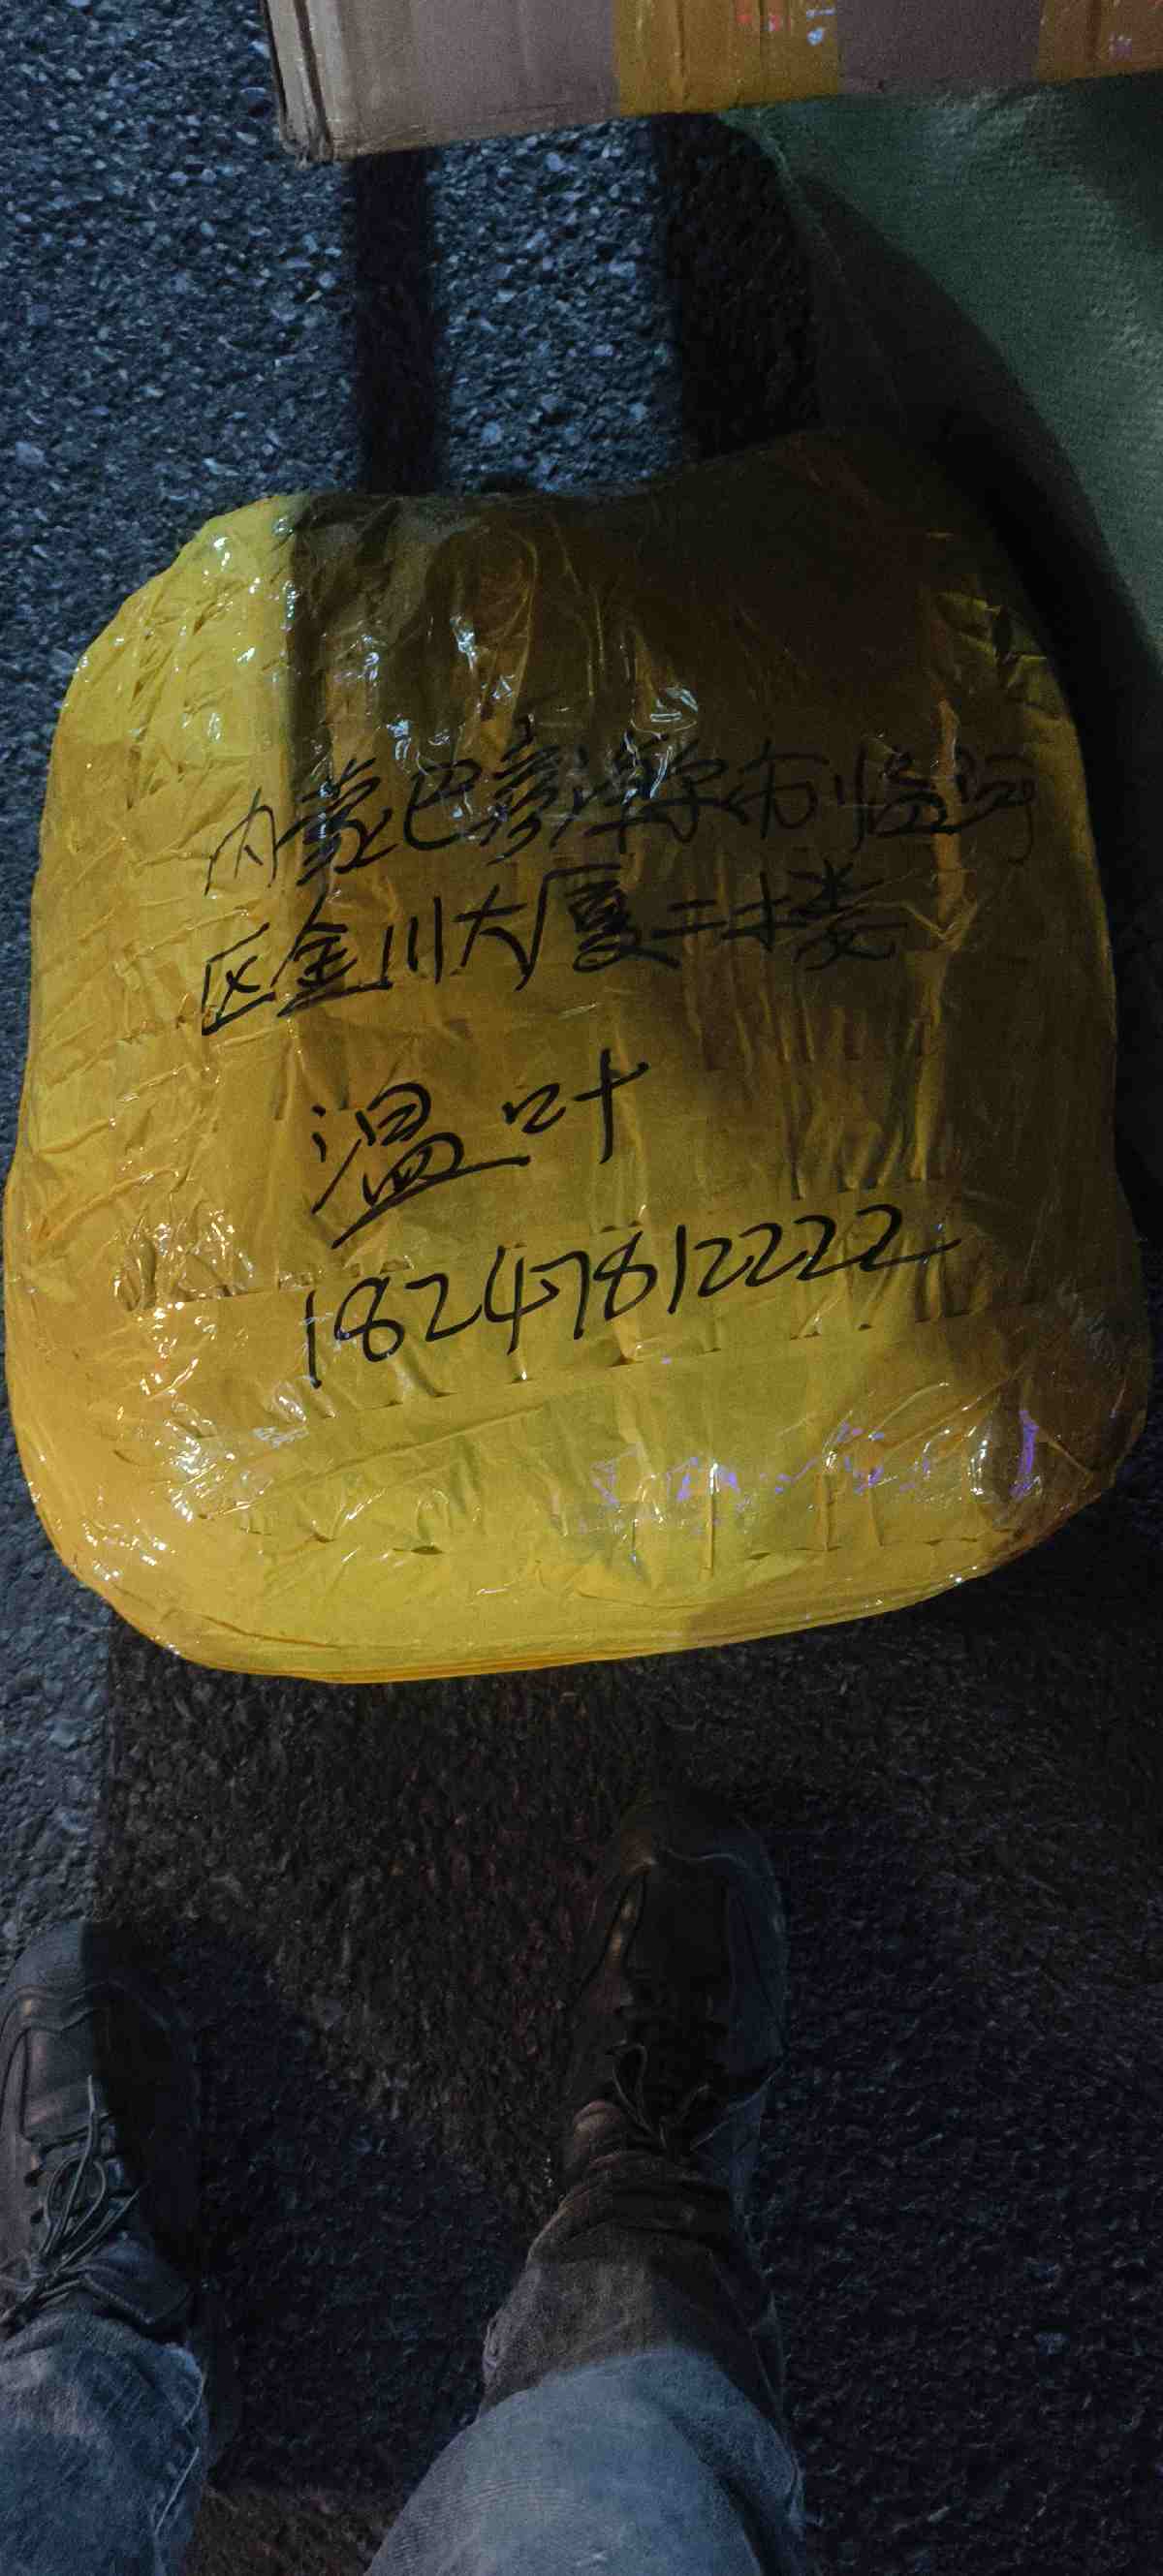 内蒙巴彦淖尔市临河
区金川大厦二楼
温叶
18247812222